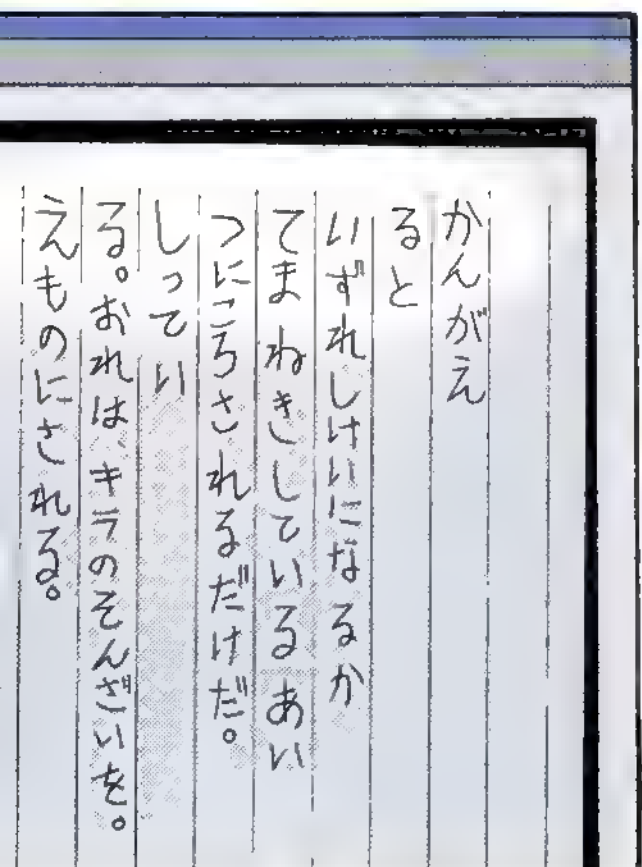 かんがえ
ると
いずれしけいになるか
てまねきしているあい
つにころされるだけだ。
しってい
る。おれは、キラのそんざいを。
えものにされる。